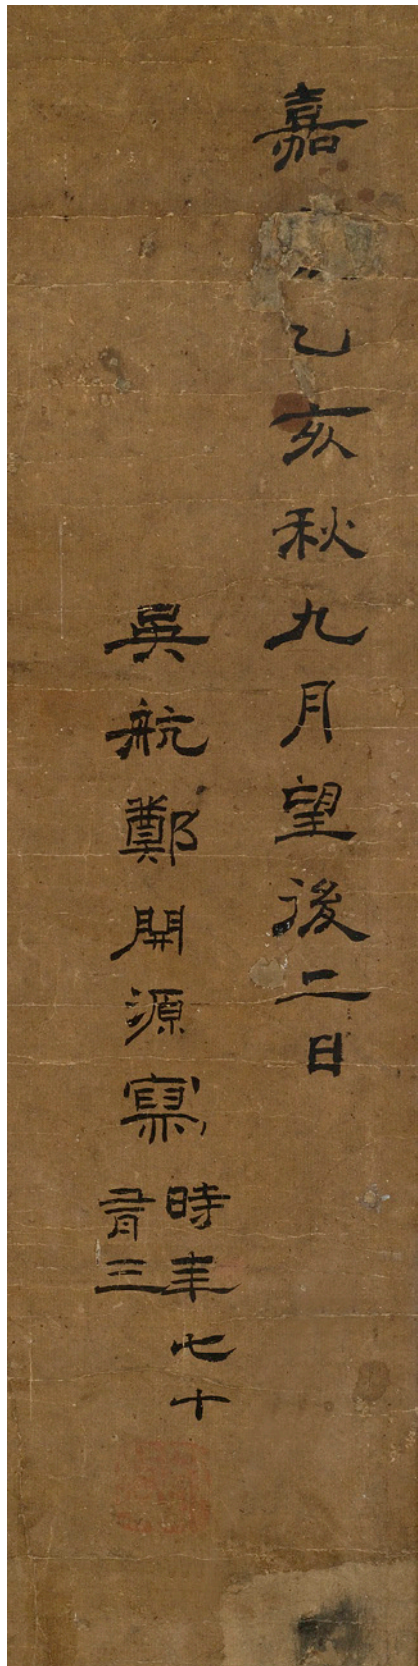 嘉 乙亥秋九月望後二日
吳航鄭開源寫
時年七十
有三